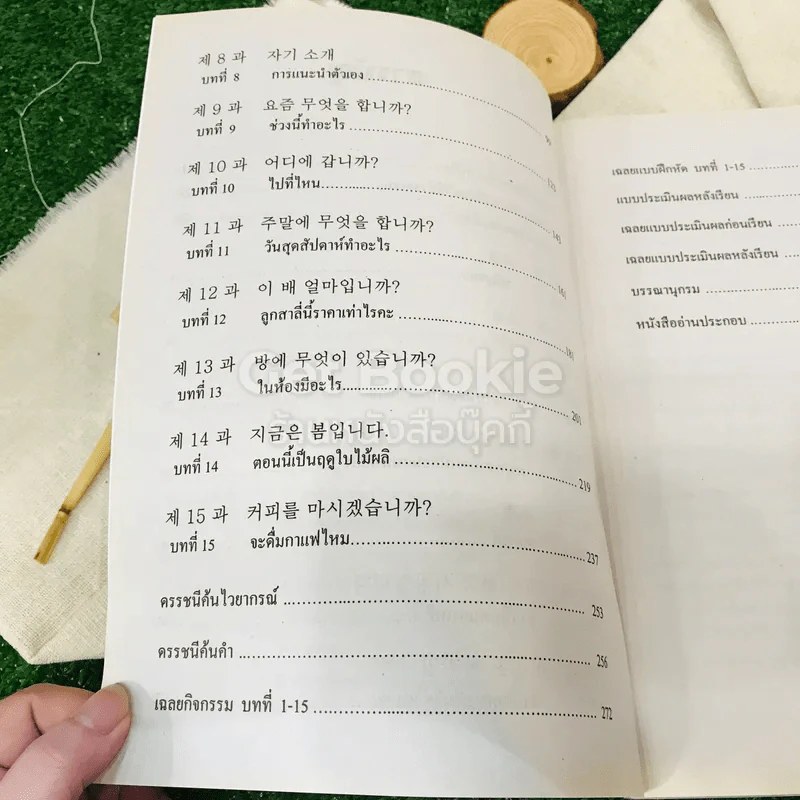 제 8 과 자기 소개
บทที่ 8 การแนะนำตัวเอง
제 9 과 요즘 무엇을 합니까?
บทที่ 9 ช่วงนี้ทำอะไร
제 10 과 어디에 갑니까?
บทที่ 10 ไปที่ไหน
제 11 과 주말에 무엇을 합니까?
บทที่ 11 วันสุดสัปดาห์ทำอะไร 161
제 12 과 이 배 얼마입니까?
บทที่ 12 ลูกสาลี่นี้ราคาเท่าไรคะ 181
제 13 과 방에 무엇이 있습니까?
บทที่ 13 ในห้องมีอะไร 201
제 14 과 지금은 봄입니다.
บทที่ 14 ตอนนี้เป็นฤดูใบไม้ผลิ 219
제 15 과 커피를 마시겠습니까?
บทที่ 15 จะดื่มกาแฟไหม 237
ดรรชนีค้นไวยากรณ์ 253
ดรรชนีค้นคำ 256
เฉลยกิจกรรม บทที่ 1-15 272
เฉลยแบบฝึกหัด บทที่ 1-15
แบบประเมินผลหลังเรียน
เฉลยแบบประเมินผลก่อนเรียน
เฉลยแบบประเมินผลหลังเรียน
บรรณานุกรม
หนังสืออ่านประกอบ
Get Bookie
ร้านหนังสือบุ๊คกี้